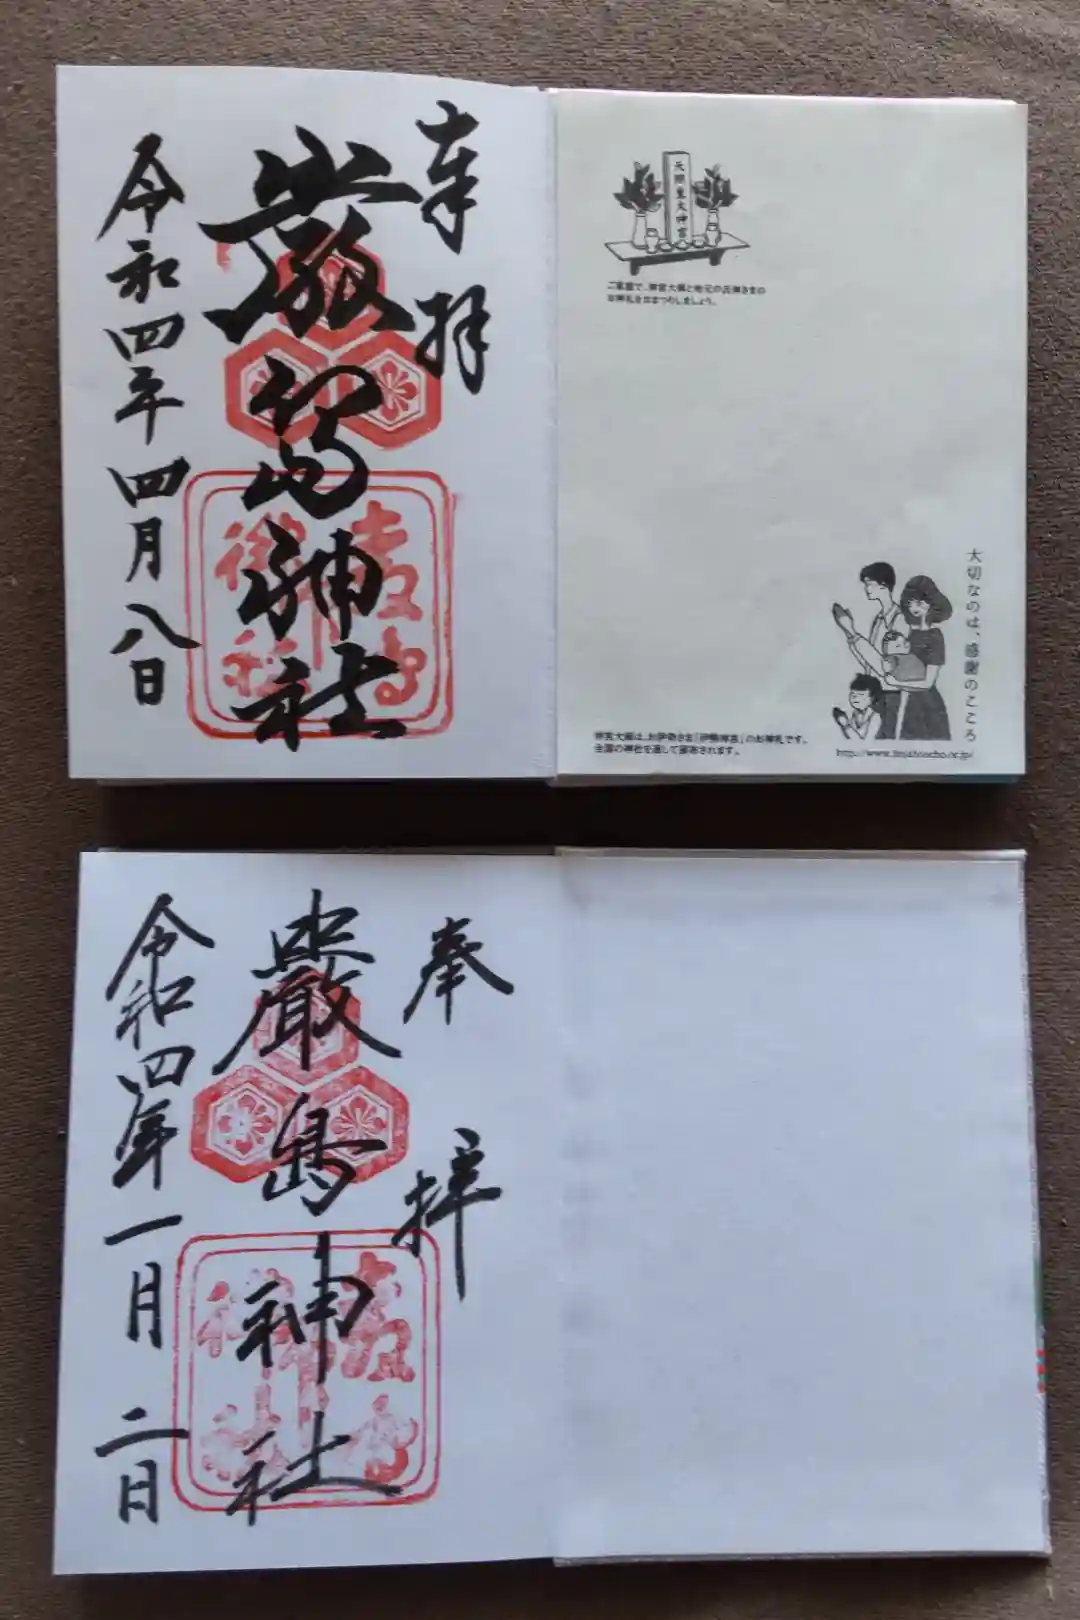 奉拝
嚴島神社
令和四年四月八日
天照皇大神宮
ご家庭で、神宮大麻と地元の氏神さまの
お神札をおまつりしましょう。
大切なのは、感謝のこころ
神宮大麻は、お伊勢さま「伊勢神宮」のお神札です。
全国の神社を通して頒布されます。
http://www.jinjahoncho.or.jp/
奉拝
嚴島神社
令和四年一月二日